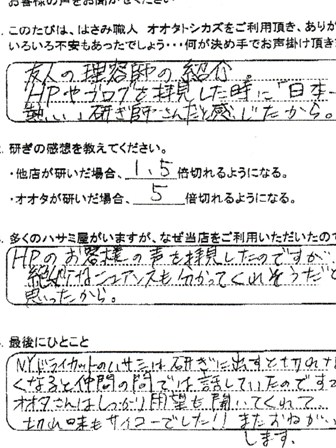 お客様の声をお聞かせください
.このたびは、はさみ職人 オオタトシカズをご利用頂き、ありが
いろいろ不安もあったでしょう・・・何が決め手でお声掛け頂き
友人の理容師の紹介。
HPやブログを拝見した時に"日本一
熱いい研ぎ師"さんだと感じたから。
.研ぎの感想を教えてください。
・他店が研いだ場合、1.5倍切れるようになる。
・オオタが研いだ場合、5倍切れるようになる。
.多くのハサミ屋がいますが、なぜ当店をご利用いただいたので
HPのお客様の声を拝見したのですが、
絶妙なニュアンスも分かってくれそうだと
思ったから。
.最後にひとこと
N.Y.ドライカットのハサミは研ぎに出すと切れな
くなると仲間の間では話していたのですが
オオタさんはしっかり用望も聞いてくれて、
切れ味もサイコーでした!!またおねが
します。